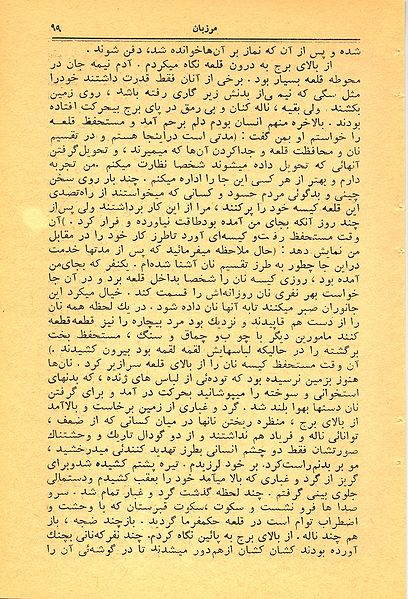 مرزبان
۹۹
شده و پس از آن که نماز بر آن‌ها خوانده شد، دفن شوند .
از بالای برج به درون قلعه نگاه میکردم . آدم نیمه جان در
محوطه قلعه بسیار بود . برخی از آنان فقط قدرت داشتند خودرا
مثل سگی که نیمی از بدنش زیر گاری رفته باشد ، روی زمین
بکشند . ولی بقیه ، ناله کنان و بی رمق در پای برج بیحرکت افتاده
بودند . بالاخره منهم انسان بودم دلم برحم آمد و مستحفظ قلعه
را خواستم او بمن گفت : (مدتی است دراینجا هستم و در تقسیم
نان و محافظت قلعه و جداکردن آن‌ها که میمیرند ، و تحویل گرفتن
آنهائی که تحویل داده میشوند شخصا نظارت میکنم .من تجربه
دارم و بهتر از هر کسی این جا را اداره میکنم . چند بار روی سخن
چینی و بدگوئی مردم حسود و کسانی که میخواستند از راه‌تصدی
این قلعه کیسه خود را پرکنند ، مرا از این کار برداشتند ولی پس‌از
چند روز آنکه بجای من آمده بود طاقت نیاورده و فرار کرد . )آن
وقت مستحفظ رفت‌و کیسه‌ای آورد تاطرز کار خود را در مقابل
من نمایش دهد : (حال ملاحظه میفرمائید که پس از مدتها خدمت
دراین جا چطور به طرز تقسیم نان آشنا شده‌ام . یکنفر که بجای‌من
آمده بود ، روزی کیسه نان را شخصا بداخل قلعه برد و در آن جا
خواست بهر نفری نان روزانه‌اش را قسمت کند . خیال میکرد این
جانوران صبر میکنند تابه آنها نان داده شود . در یك لحظه همه نان
را از دست هم قاپیدند و نزدیك بود مرد بیچاره را نیز قطعه‌قطعه
کنند مامورین دیگر با چوب‌و چماق و سنگ ، مستحفظ بخت
برگشته را در حالیکه لباسهایش لقمه لقمه بود بیرون کشیدند .)
آن وقت مستحفظ کیسه نان را از بالای قلعه سرازیر کرد . نان‌ها
هنوز بزمین نرسیده بود که توده‌ئی از لباس های ژنده ، که بدنهای
استخوانی و سوخته را میپوشانید بحرکت در آمد و برای گرفتن
نان دستها بهوا بلند شد . گرد و غباری از زمین برخاست و بالاآمد
از بالای برج ، منظره ریختن نانها در میان کسانی که از ضعف ،
توانائی ناله و فریاد هم نداشتند و از دو گودال تاریك و وحشتناك
صورتشان فقط دو چشم انسانی بطرز تهدید کنندئی میدرخشید ،
مو بر بدنم‌راست‌کرد. بر خود لرزیدم . تیره پشتم کشیده شدوبرای
گریز از گرد و غباری که بالا میآمد خود را بعقب کشیدم ودستمالی
جلوی بینی گرفتم . چند لحظه گذشت گرد و غبار تمام شد . سرو
صدا ها فرو نشست و سکوت ،سکوت قبرستان که با وحشت و
اضطراب توام است در قلعه حکمفرما گردید . بازچند ضجه ، باز
هم چند ناله . از بالای برج به پائین نگاه کردم. چند نفرکه‌نانی بچنك
آورده بودند کشان کشان ازهم‌دور میشدند تا در گوشه‌ئی آن را